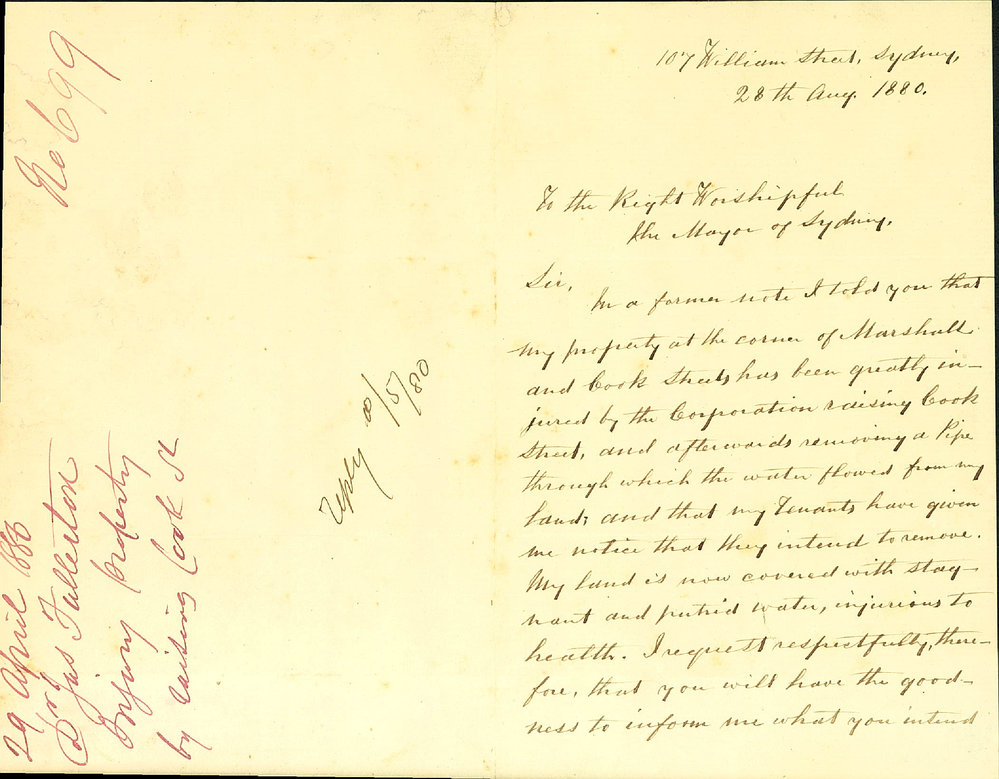 No 699
29 April 1880
Dr Jas Fullerton
Injury property
by raising Cook St
Reply 8/5/80
107 William Street, Sydney,
28th Aug. 1880.
To the Right Worshipful
the Mayor of Sydney,
Sir,
In a former note I told you that
my property at the corner of Marshall
and Cook Streets has been greatly in-
jured by the Corporation raising Cook
Street, and afterwards removing a Pipe
through which the water flowed from my
land; and that my Tenants have given
me notice that they intend to remove.
My land is now covered with stag-
nant and putrid water, injurious to
health. I request respectfully, there-
fore, that you will have the good-
ness to inform me what you intend